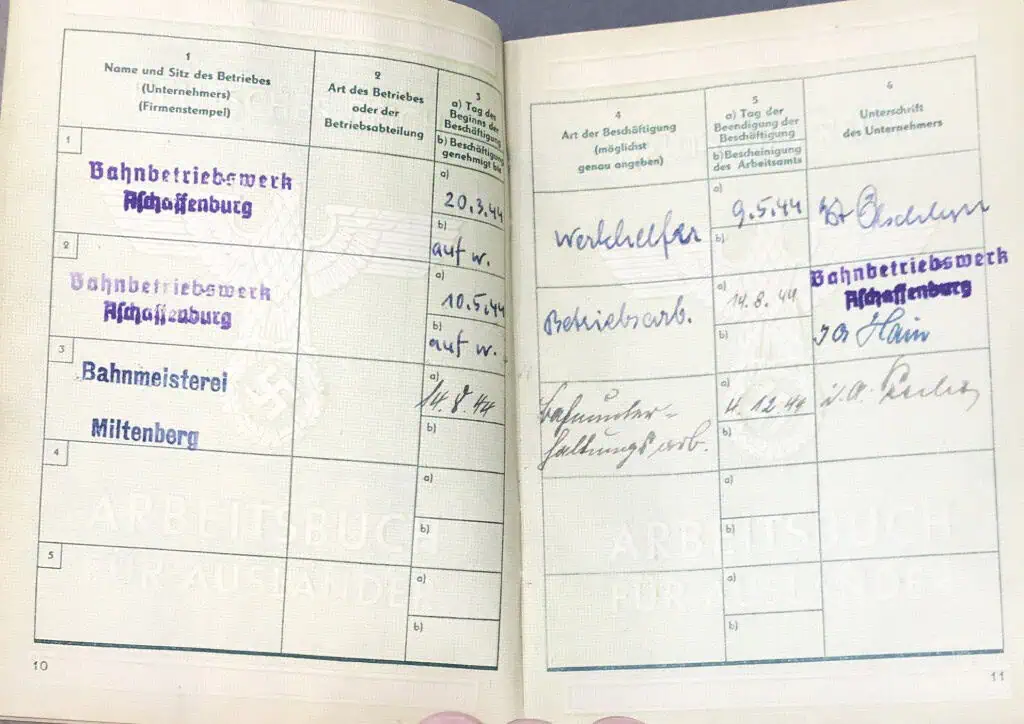 1
Name und Sitz des Betriebes
(Unternehmers)
(Firmenstempel)
2
Art des Betriebes
oder der
Betriebsabteilung
3
a) Tag des
Beginns der
Beschäftigung
b) Beschäftigung
genehmigt bis
1
Bahnbetriebswerk
Aschaffenburg
a)
20.3.44
b)
auf w.
2
Bahnbetriebswerk
Aschaffenburg
a)
10.5.44
b)
auf w.
3
Bahnmeisterei
Miltenberg
a)
14.8.44
b)
4
a)
b)
5
a)
b)
ARBEITSBUCH
FÜR AUSLÄNDER
10
4
Art der Beschäftigung
(möglichst
genau angeben)
5
a) Tag der
Beendigung der
Beschäftigung
b) Bescheinigung
des Arbeitsamts
6
Unterschrift
des Unternehmers
Werkhelfer
a)
9.5.44
b)
Betriebsarb.
a)
14.8.44
b)
Bahnbetriebswerk
Aschaffenburg
Hain
Bahnunter-
haltungsarb.
a)
4.12.44
b)
i.A.
a)
b)
a)
b)
ARBEITSBUCH
FÜR AUSLÄNDER
11